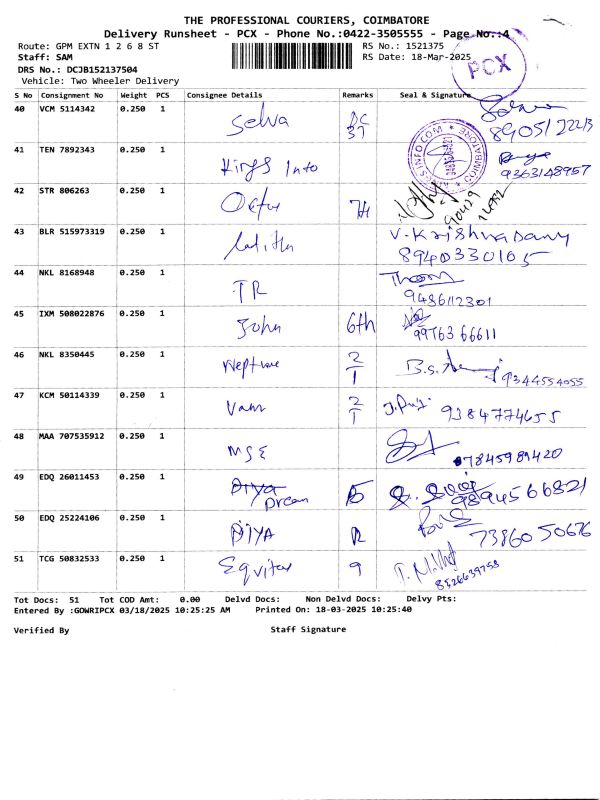 THE PROFESSIONAL COURIERS, COIMBATORE
Delivery Runsheet - PCX - Phone No.:0422-3505555 - Page No.:4
Route: GPM EXTN 1 2 6 8 ST RS No.: 1521375
Staff: SAM RS Date: 18-Mar-2025
PCX
DRS No.: DCJB152137504
Vehicle: Two Wheeler Delivery
S No Consignment No Weight PCS Consignee Details Remarks Seal & Signature
40 VCM 5114342 0.250 1 Selva
41 TEN 7892343 0.250 1 Kings Into 9363148957
COIMBATORE
42 STR 806263 0.250 1
43 BLR 515973319 0.250 1 Lalitha V. Krishnasamy
8940330105
44 NKL 8168948 0.250 1 TR
9486112301
45 IXM 508022876 0.250 1 John 6th
99763 66611
46 NKL 8350445 0.250 1 Neptune 2/1 9344554055
47 KCM 50114339 0.250 1 Vam 2/1 9384774655
48 MAA 707535912 0.250 1 MSE 7845989420
49 EDQ 26011453 0.250 1 Diya
Dream 9894566821
50 EDQ 25224106 0.250 1 DIYA R 7386050676
51 TCG 50832533 0.250 1 Equitas 9
8526639758
Tot Docs: 51 Tot COD Amt: 0.00 Delvd Docs: Non Delvd Docs: Delvy Pts:
Entered By :GOWRIPCX 03/18/2025 10:25:25 AM Printed On: 18-03-2025 10:25:40
Verified By Staff Signature